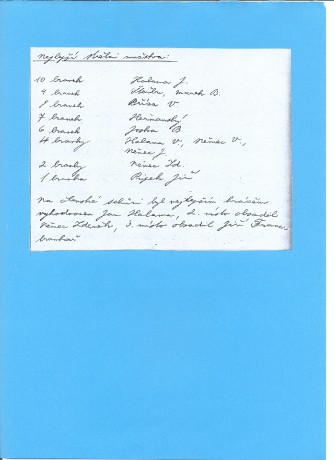 Nejlepší střelci mužstva:
10 branek Halama J.
9 branek B.
8 branek V.
7 branek Heřmanský
6 branek B
4 branky Halama V, Němec V,
Němec J.
2 branky Němec Zd.
1 branka Jiří
Na členské schůzi byl nejlepším hráčem
vyhodnocen Jan Halama, 2. místo obsadil
Němec Zdeněk, 3. místo obsadil Jiří
brankář